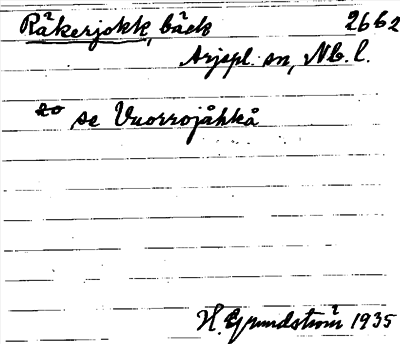 Råkerjokk, bäck 2662
Arjepl. sn, Nb. l.
se Vuorrojåhkå
H. Grundström 1935